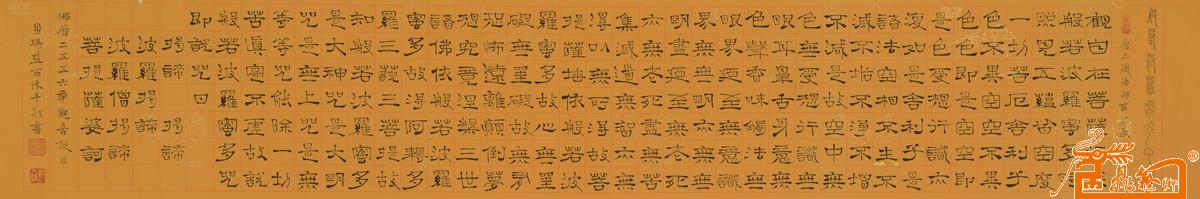 般若波羅蜜多心經
唐三藏法師玄奘譯
觀自在菩薩行深
般若波羅蜜多時
照見五蘊皆空度
一切苦厄舍利子
色不異空空不異
色色即是空空即
是色受想行識亦
復如是舍利子是
諸法空相不生不
滅不垢不淨不增
不減是故空中無
色無受想行識無
眼耳鼻舌身意無
色聲香味觸法無
眼界乃至無意識
界無無明亦無無
明盡乃至無老死
亦無老死盡無苦
集滅道無智亦無
得以無所得故菩
提薩埵依般若波
羅蜜多故心無罣
礙無罣礙故無有
恐怖遠離顛倒夢
想究竟涅槃三世
諸佛依般若波羅
蜜多故得阿耨多
羅三藐三菩提故
知般若波羅蜜多
是大神咒是大明
咒是無上咒是無
等等咒能除一切
苦真實不虛故說
般若波羅蜜多咒
即說咒曰
揭諦 揭諦
波羅揭諦
波羅僧揭諦
菩提薩婆訶
佛曆二五五六年觀音誕日
馮益西休手敬書